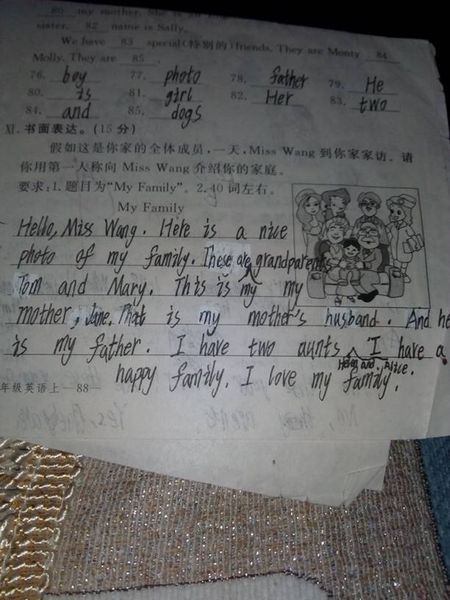 80 my mother. She is
sister. 82 name is Sally.
We have 83 special(特别的)friends. They are Monty 84
Molly. They are 85.
76. boy 77. photo 78. father 79. He
80. is 81. girl 82. Her 83. two
84. and 85. dogs
XI. 书面表达。(15分)
假如这是你家的全体成员,一天,Miss Wang 到你家家访。请
你用第一人称向 Miss Wang 介绍你的家庭。
要求:1.题目为"My Family"。2.40词左右。
My Family
Hello, Miss Wang. Here is a nice
photo of my family. These are grandparents
Tom and Mary. This is my my
mother, Jane. That is my mother's husband. And he
is my father. I have two aunts I have a
Helen and Alice.
happy family. I love my family.
年级英语上—88—